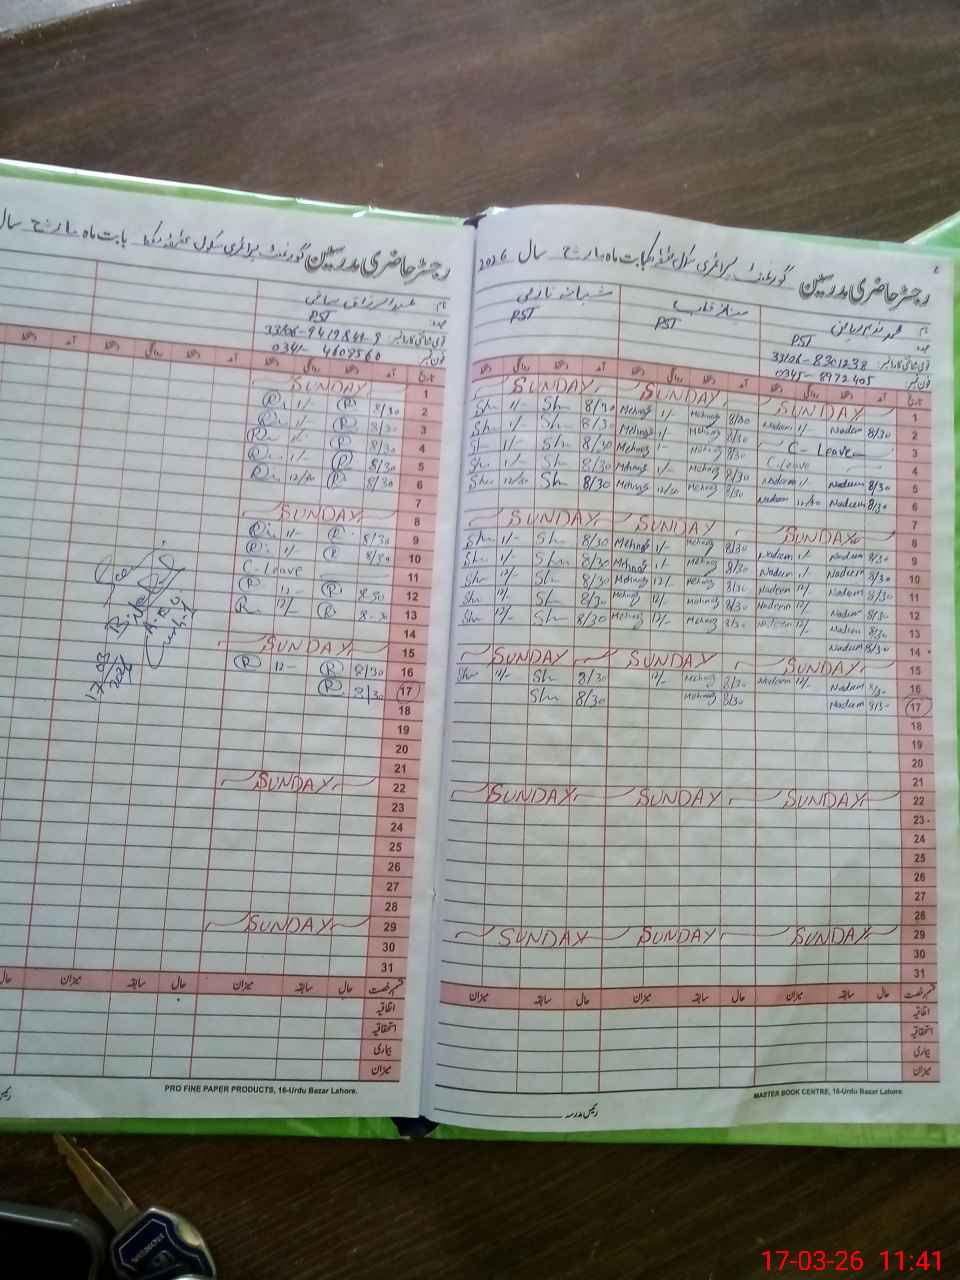 رجسٹر حاضری مدرسین گورنمنٹ پرائمری سکول بابت ماہ مارچ سال 2026
نام
عہدہ PST PST PST
قومی شناختی کارڈ نمبر 33106-8301238
فون نمبر 0345-8972405
تاریخ آمد دستخط روانگی دستخط آمد دستخط روانگی دستخط آمد دستخط روانگی دستخط
1 SUNDAY SUNDAY SUNDAY
2 8/30 Nadeem 1/- Nadeem 8/30 Mehnaz 1/- Mehnaz 8/30 Sh 1/- Sh
3 C-Leave 8/30 Mehnaz 1/- Mehnaz 8/30 Sh 1/- Sh
4 C-Leave 8/30 Mehnaz 1/- Mehnaz 8/30 Sh 1/- Sh
5 8/30 Nadeem 1/- Nadeem 8/30 Mehnaz 1/- Mehnaz 8/30 Sh 1/- Sh
6 8/30 Nadeem 12/30 Nadeem 8/30 Mehnaz 12/30 Mehnaz 8/30 Sh 12/30 Sh
7
8 SUNDAY SUNDAY SUNDAY
9 8/30 Nadeem 1/- Nadeem 8/30 Mehnaz 1/- Mehnaz 8/30 Sh 1/- Sh
10 8/30 Nadeem 1/- Nadeem 8/30 Mehnaz 1/- Mehnaz 8/30 Sh 1/- Sh
11 8/30 Nadeem 12/- Nadeem 8/30 Mehnaz 12/- Mehnaz 8/30 Sh 12/- Sh
12 8/30 Nadeem 12/- Nadeem 8/30 Mehnaz 12/- Mehnaz 8/30 Sh 12/- Sh
13 8/30 Nadeem 12/- Nadeem 8/30 Mehnaz 12/- Mehnaz 8/30 Sh 12/- Sh
14 8/30 Nadeem
15 SUNDAY SUNDAY SUNDAY
16 8/30 Nadeem 12/- Nadeem 8/30 Mehnaz 12/- 8/30 Sh 12/- Sh
17 8/30 Nadeem 8/30 Mehnaz 8/30 Sh
18
19
20
21
22 SUNDAY SUNDAY SUNDAY
23
24
25
26
27
28
29 SUNDAY SUNDAY SUNDAY
30
31
قسم رخصت حال سابقہ میزان حال سابقہ میزان حال سابقہ میزان
اتفاقیہ
استحقاقیہ
بیماری
میزان
MASTER BOOK CENTRE, 16-Urdu Bazar Lahore
رئیس مدرسہ
رجسٹر حاضری مدرسین گورنمنٹ پرائمری سکول بابت ماہ مارچ سال
نام عبدالرزاق
عہدہ PST
قومی شناختی کارڈ نمبر 33106-9419841-9
فون نمبر 0341-4609560
تاریخ آمد دستخط روانگی دستخط آمد دستخط روانگی دستخط
1 SUNDAY
2 8/30 R 1/- R
3 8/30 R 1/- R
4 8/30 R 1/- R
5 8/30 R 1/- R
6 8/30 R 12/30 R
7
8 SUNDAY
9 8/30 R 1/- R
10 8/30 R 1/- R
11 C-Leave
12 8-30 R 12- R
13 8-30 R 12/- R
14
15 SUNDAY
16 8/30 R 12- R
17 8/30 R
18
19
20
21
22 SUNDAY
23
24
25
26
27
28
29 SUNDAY
30
31
قسم رخصت حال سابقہ میزان حال سابقہ میزان حال
اتفاقیہ
استحقاقیہ
بیماری
میزان
PRO FINE PAPER PRODUCTS, 16-Urdu Bazar Lahore.
17-03-26 11:41